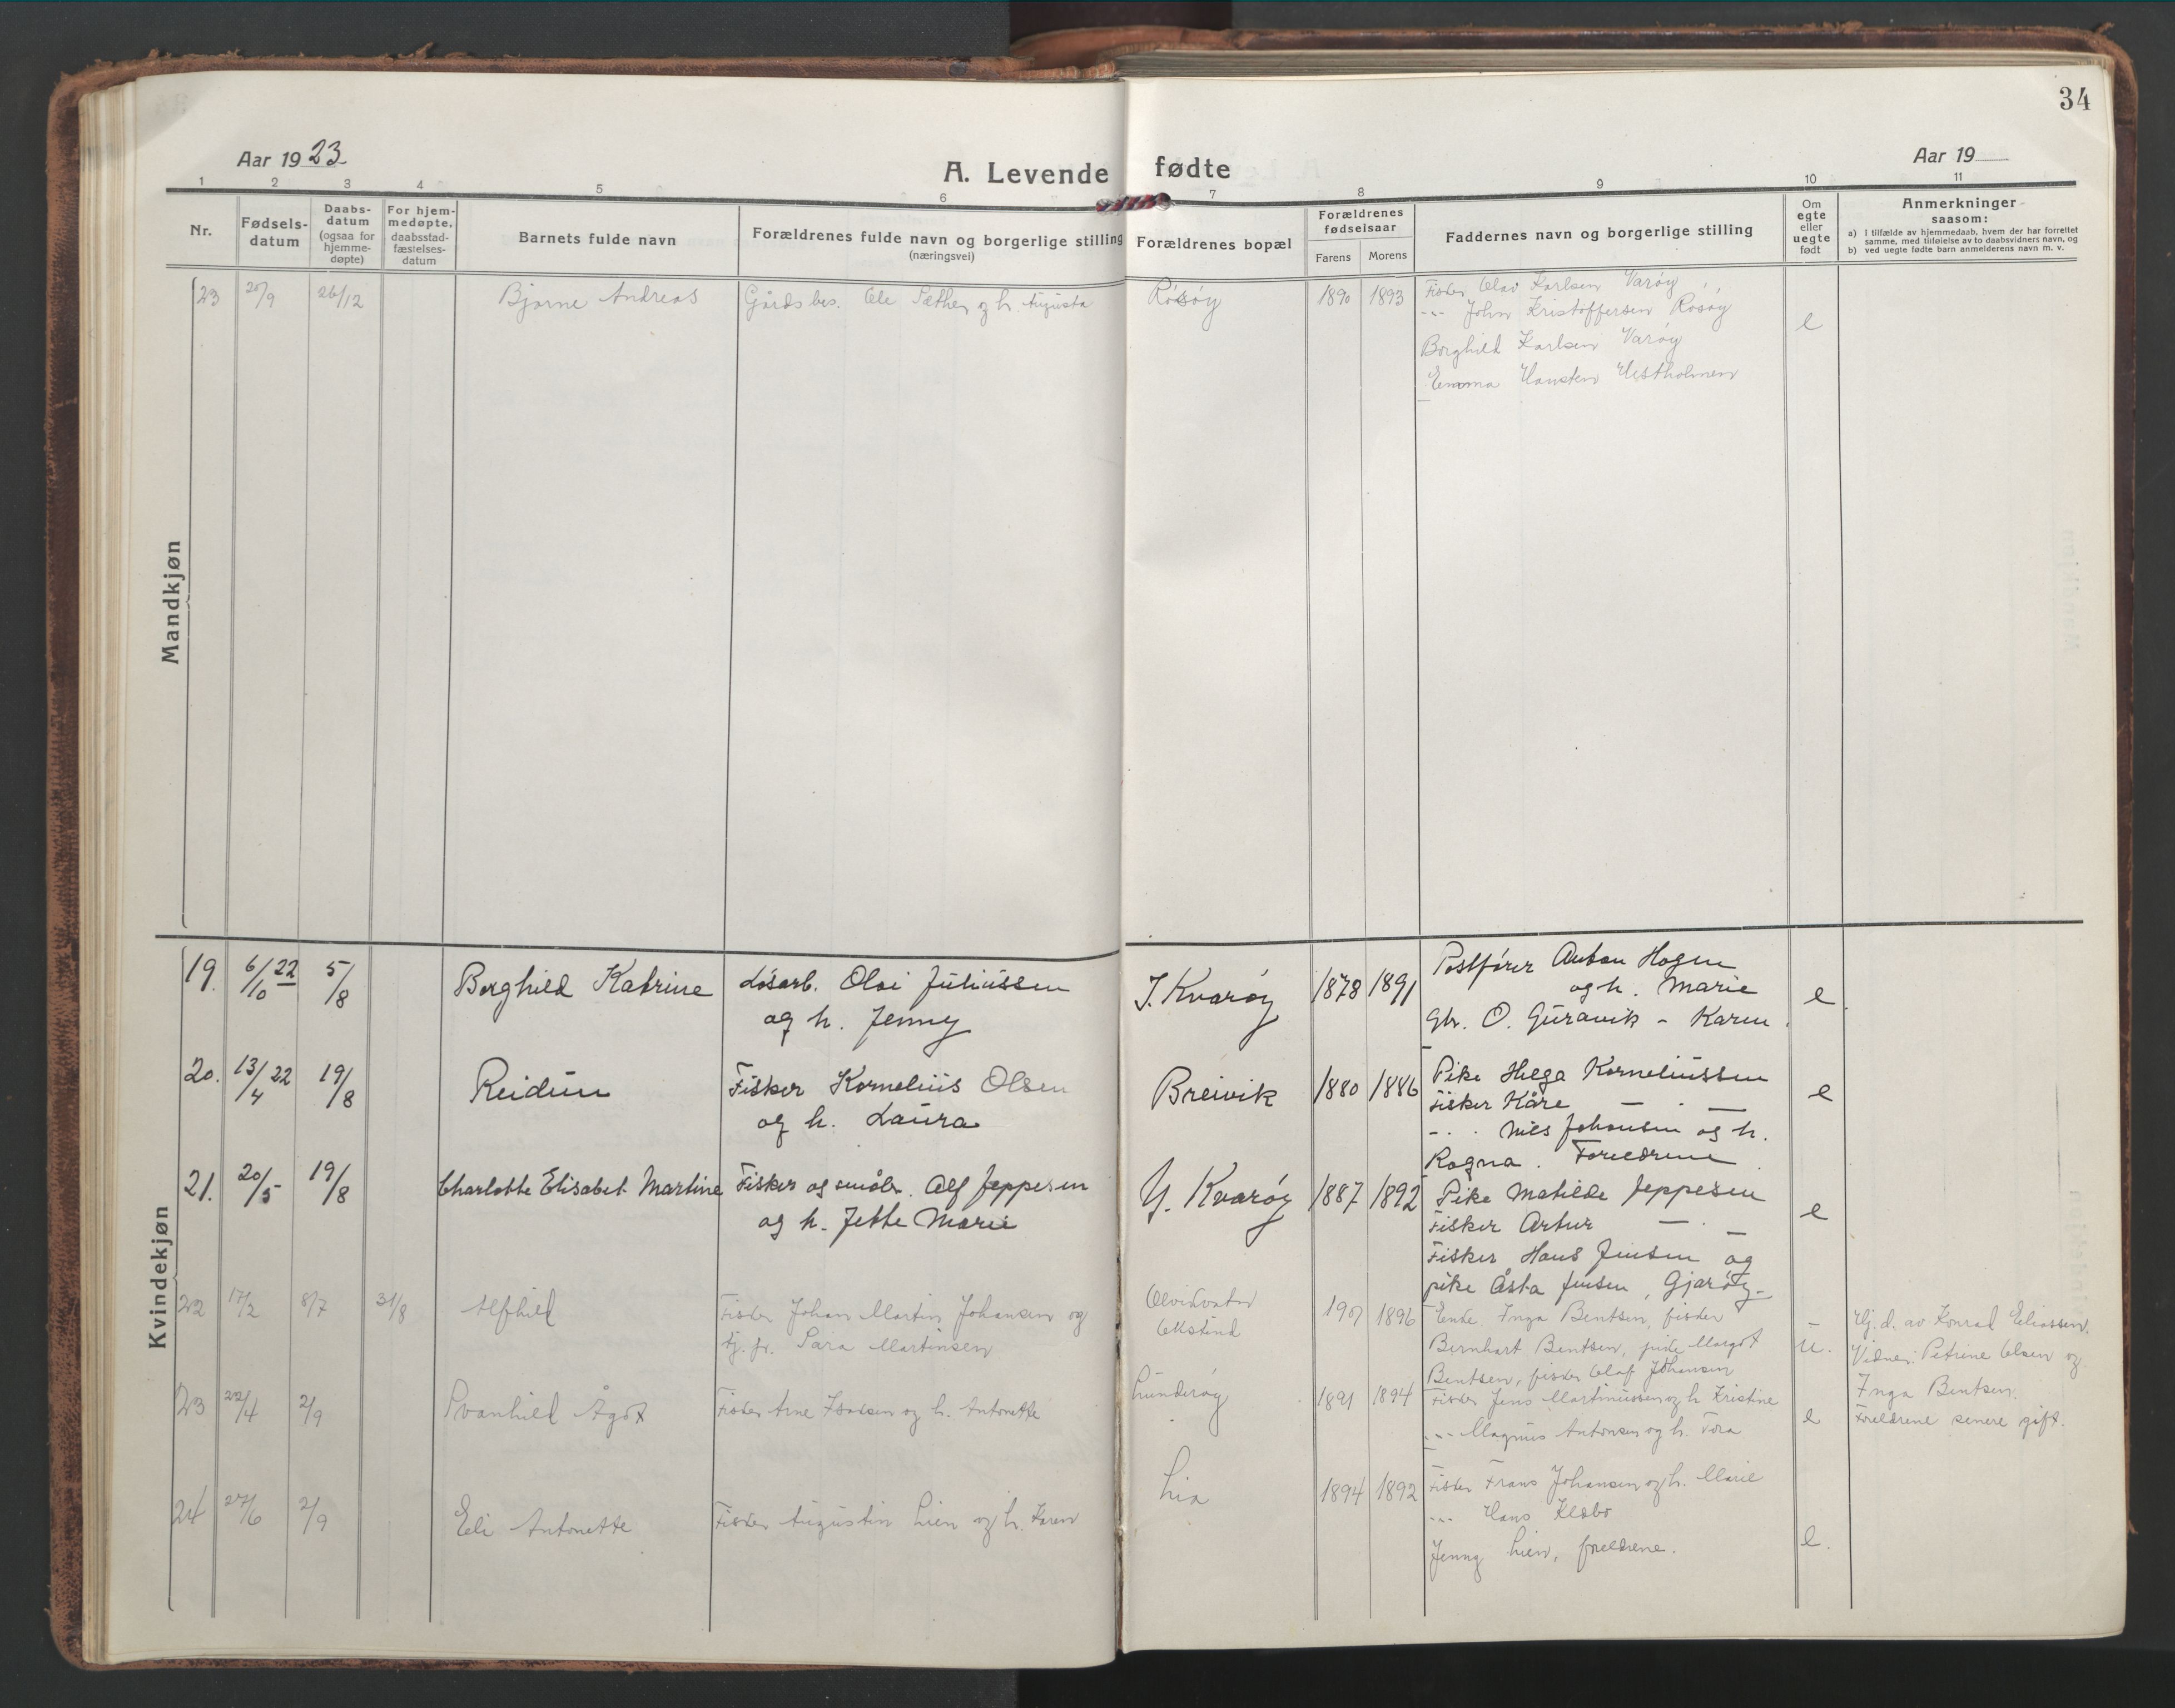 34
Aar 1923
A. Levende fødte
Aar 19
1 2 3 4 5 6 7 8 9 10 11
Nr.
Fødsels-
datum
Daabs-
datum
(ogsaa for
hjemme-
døpte)
For hjem-
medøpte,
daabsstad-
fæstelses-
datum
Barnets fulde navn
Forældrenes fulde navn og borgerlige stilling
(næringsvei)
Forældrenes bopæl
Forældrenes
fødselsaar
Farens Morens
Faddernes navn og borgerlige stilling
Om
egte
eller
uegte
født
Anmerkninger
saasom:
a) I tilfælde av hjemmedaab, hvem der har forrettet
samme, med tilføielse av to daabsvidners navn, og
b) ved uegte fødte barn anmelderens navn m. v.
Mandkjøn
23 20/9 26/12 Bjarne Andreas Gårdsbes. Ole Sæther og h. Augusta Rósóy 1890 1893 Fisker Olav Karlsen Varóy
-"- John Kristoffersen Rósóy e
Borghild Karlsen Varóy
Emma Hansten
Kvindekjøn
19. 6/10 22 5/8 Borghild Katrine Lósarb. Olai Júliússen I. Kvaróy 1878 1891 Postfórer Anton Hagen
og h. Jenny og h. Marie e
Gbr. O. Gúravik - Karen
20. 13/4 22 19/8 Reidún Fisker Kornelius Olsen Breivik 1880 1886 Pike Helga Korneliússen e
og h. Laúra Fisker Kåre — . —
- . . Nils Johansen og h.
Ragna. Foreldrene
21. 20/5 19/8 Charlotte Elisabet Martine Fisker og småbr. Alf Jeppesen Y. Kvaróy 1887 1892 Pike Matilde Jeppesen
og h. Jette Marie Fisker Artur — . — e
Fisker Hans Jensen og
pike Åsta Jensen, Gjaróy -
22 17/2 8/7 31/8 Alfhild Fisker Johan Martin Johansen og 1907 1896 Enke Inga Bentsen, fisker Hj. d. av Konrad Eliassen.
tj. p. Sara Martinsen Bernhart Bentsen, pike Margot u. Vidner: Petrine Olsen og
Bentsen, fisker Olaf Johansen Inga Bentsen.
Foreldrene senere gift.
23 22/4 2/9 Svanhild Ågot Fisker Arne Isaksen og h. Antonette Lúnderóy 1891 1894 Fisker Jens Martinússen og h. Kristine
-"- Magnús Antonsen og h. Tora e
24 27/6 2/9 Eli Antonette Fisker Augustin Lien og h. Karen Lia 1894 1892 Fisker Frans Johansen og h. Marie
-"- Hans Klæbo
Jenny Lien, foreldrene. e.